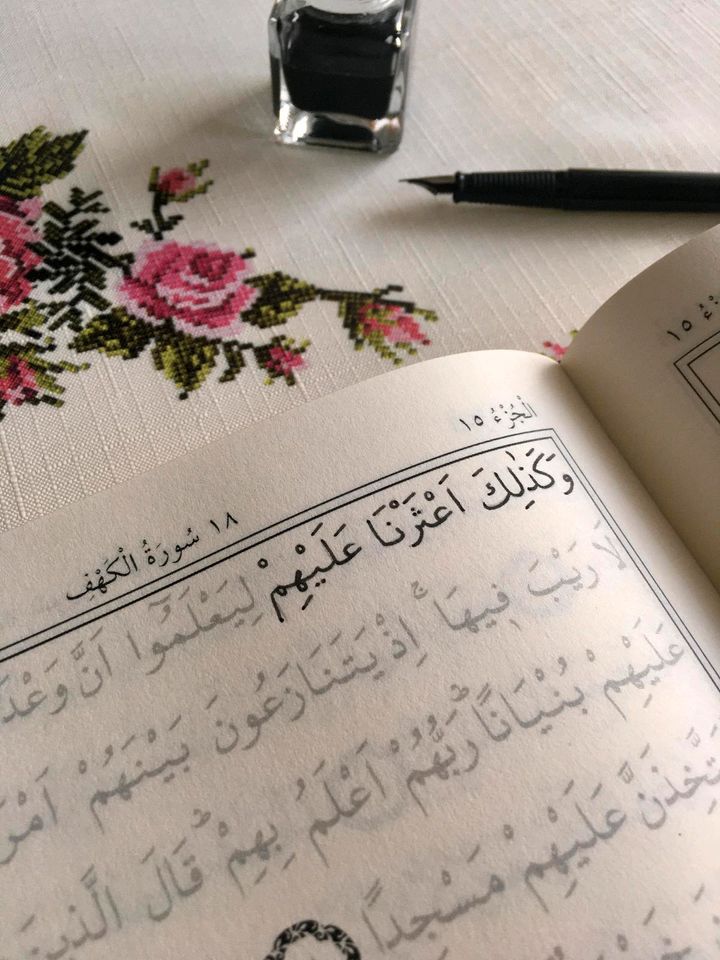 اَلْجُزْءُ ١٥
١٨ سُورَةُ الْكَهْفِ
وَكَذٰلِكَ اَعْثَرْنَا عَلَيْهِمْ لِيَعْلَمُٓوا اَنَّ وَعْدَ
لَا رَيْبَ فِيهَاۚ اِذْ يَتَنَازَعُونَ بَيْنَهُمْ اَمْرَ
عَلَيْهِمْ بُنْيَانًاۜ رَبُّهُمْ اَعْلَمُ بِهِمْۜ قَالَ الَّذِينَ
تَّخِذَنَّ عَلَيْهِمْ مَسْجِدًا
١٥